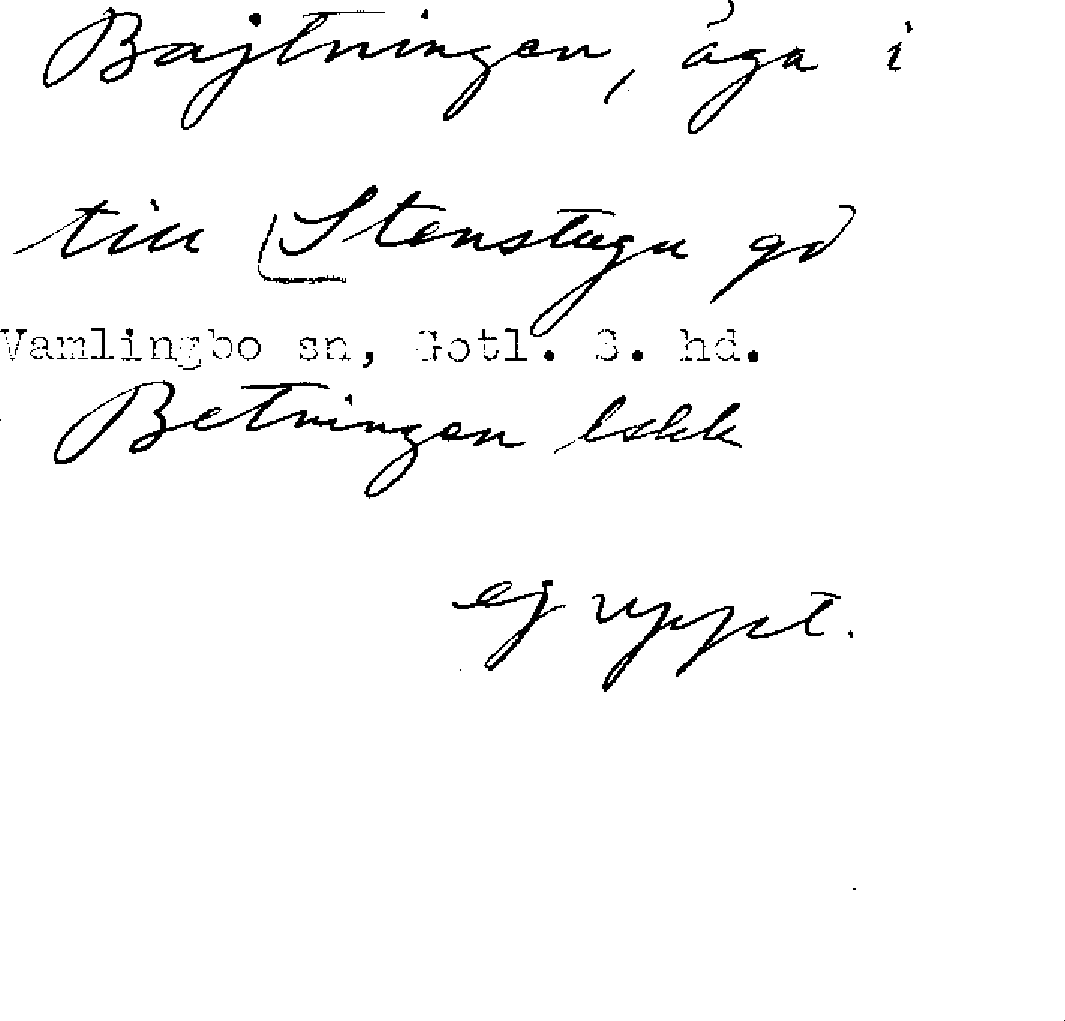 Bajtningen, åga i
till Stenstugu gd
Vamlingbo sn, Gotl. S. hd.
Betningen
ej uppt.